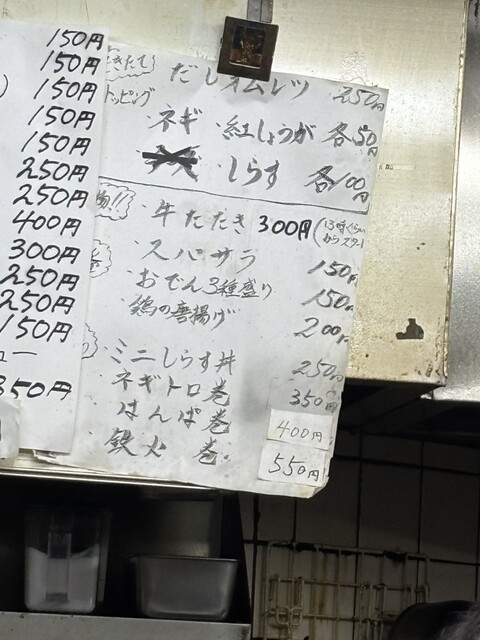 150円
150円
150円
150円
150円
250円
250円
400円
300円
250円
250円
150円
ュー
350円
きたて
だしオムレツ 250円
トッピング
・ネギ ・紅しょうが 各50円
・しらす 各100円
物!!
・牛たたき 300円 (13時くらいからスタート
・スパサラ 150円
・おでん3種盛り 150円
・鶏の唐揚げ 200円
・ミニしらす丼 250円
・ネギトロ巻 350円
・はんぱ巻 400円
・鉄火巻。 550円